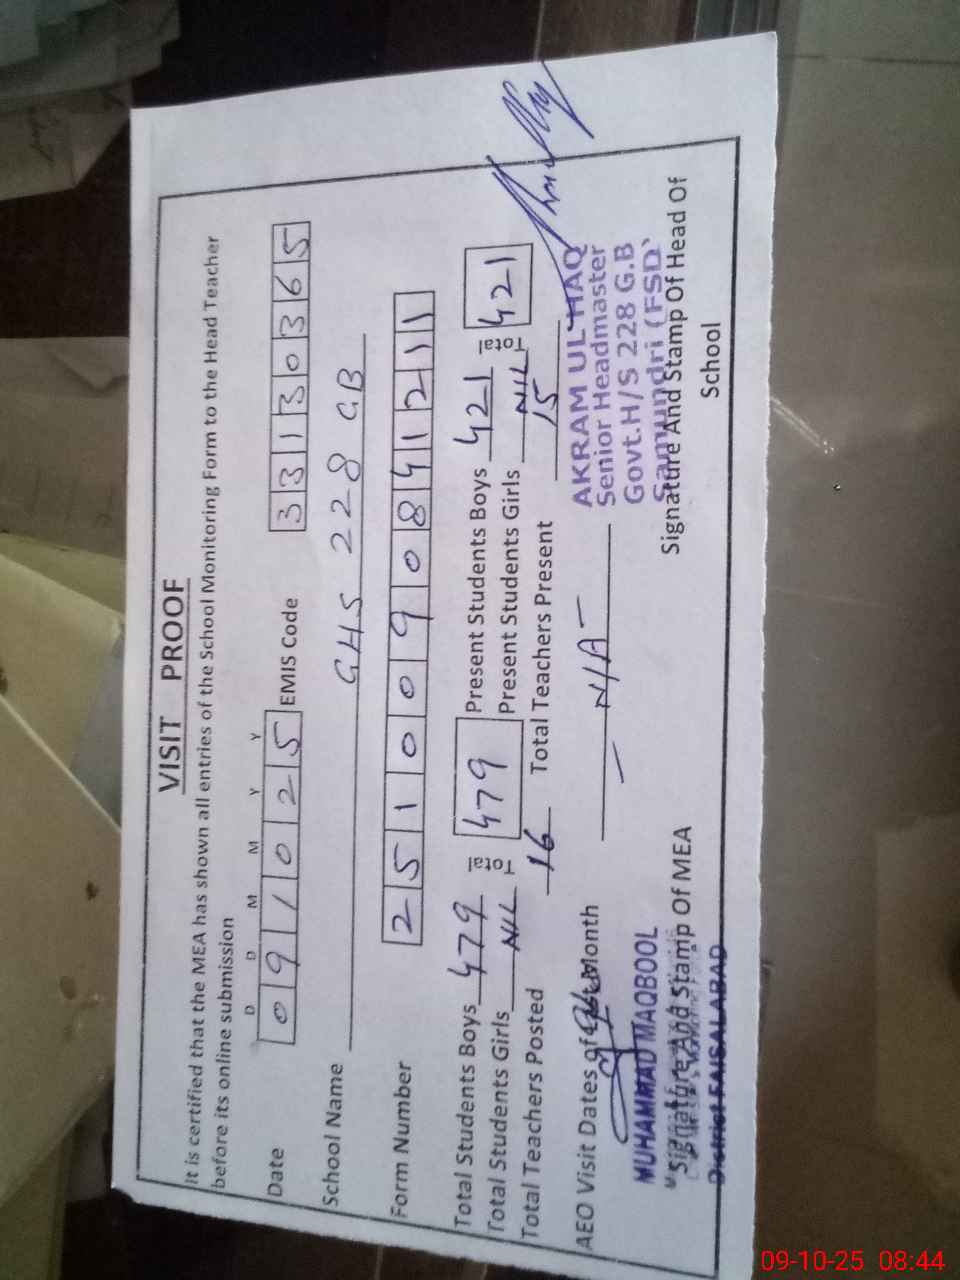 VISIT PROOF
It is certified that the MEA has shown all entries of the School Monitoring Form to the Head Teacher
before its online submission
D D M M Y Y
Date 0 9 1 0 2 5 EMIS Code 3 3 1 3 0 3 6 5
School Name GHS 228 GB
Form Number 2 5 1 0 0 9 0 8 4 1 2 1 1
Total Students Boys 479 Total 479 Present Students Boys 421 Total 421
Total Students Girls NIL Present Students Girls NIL
Total Teachers Posted 16 Total Teachers Present 15
AEO Visit Dates of Month — N/A —
AKRAM UL HAQ
Senior Headmaster
Govt.H/S 228 G.B
Samundri (FSD)
MUHAMMAD MAQBOOL
Signature And Stamp Of MEA
District FAISALABAD
Signature And Stamp Of Head Of
School
09-10-25 08:44